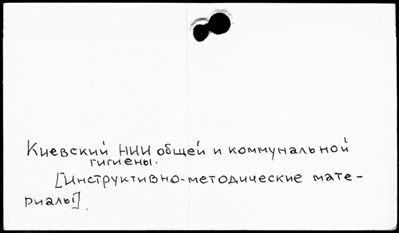 Киевский НИИ общей и коммунальной
гигиены.
[Инструктивно-методические мате-
риалы].